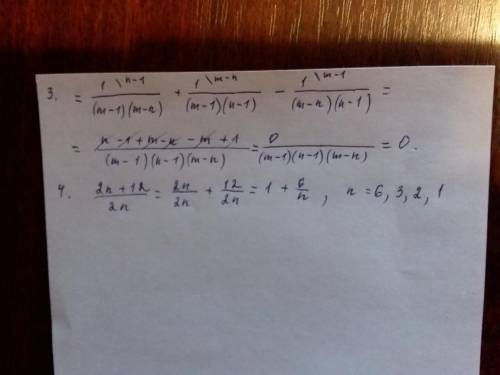 3. = \frac{1 \ ^{\backslash n-1}}{(m-1)(m-n)} + \frac{1 \ ^{\backslash m-n}}{(m-1)(n-1)} - \frac{1 \ ^{\backslash m-1}}{(m-n)(n-1)} =
= \frac{n-1+m-n-m+1}{(m-1)(n-1)(m-n)} = \frac{0}{(m-1)(n-1)(m-n)} = 0.
4. \frac{2n+12}{2n} = \frac{2n}{2n} + \frac{12}{2n} = 1 + \frac{6}{n}, n = 6, 3, 2, 1